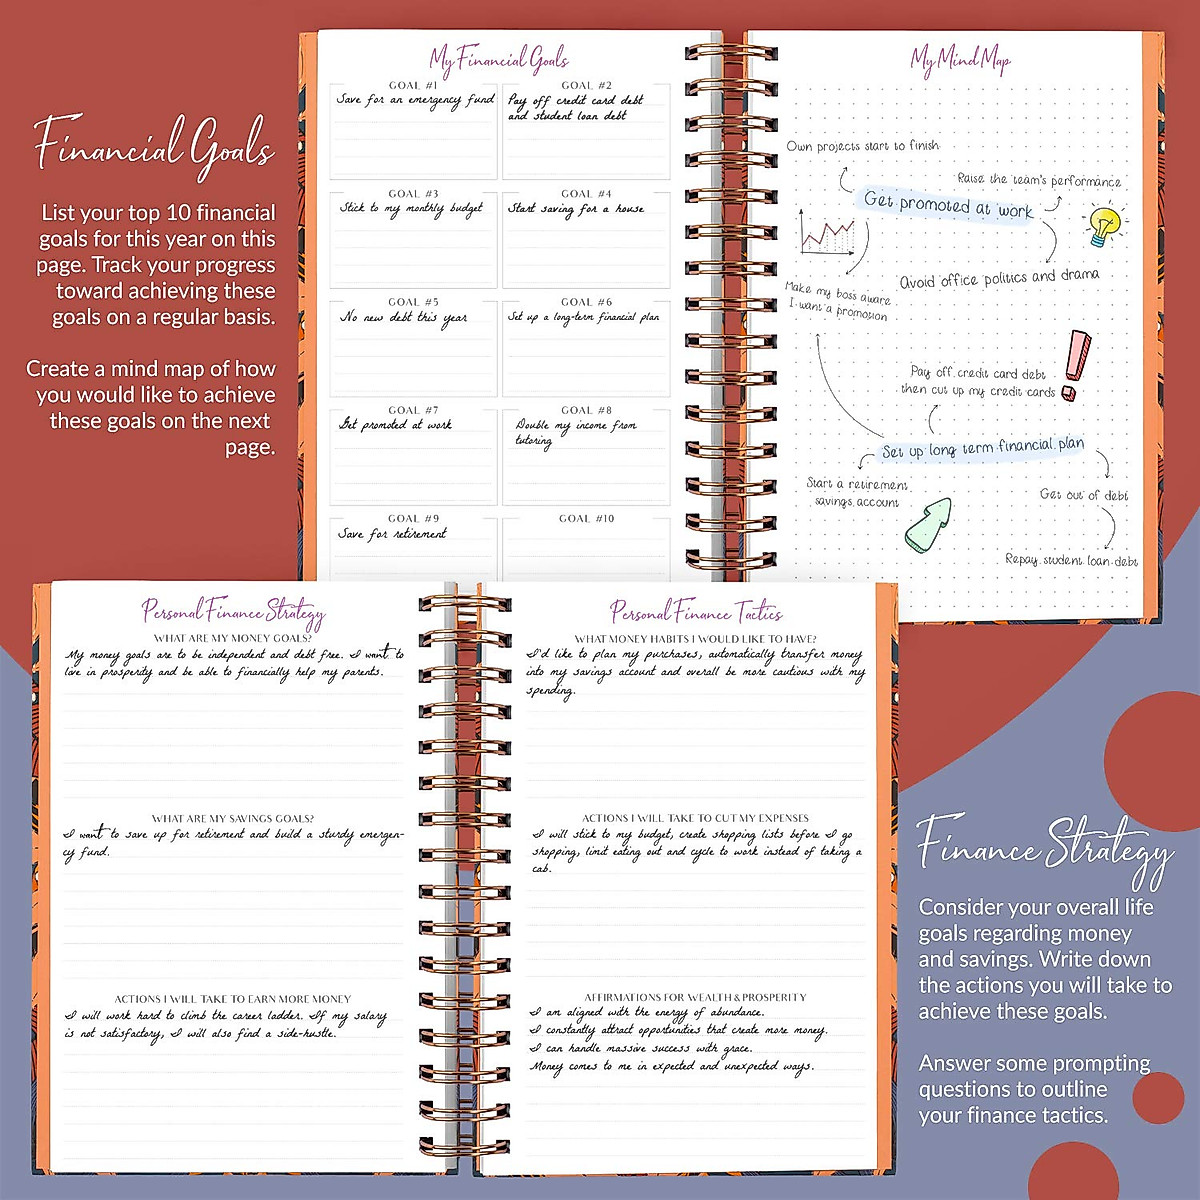 Financial Goals
List your top 10 financial
goals for this year on this
page. Track your progress
toward achieving these
goals on a regular basis.
Create a mind map of how
you would like to achieve
these goals on the next
page.
My Financial Goals
GOAL #1
Save for an emergency fund
GOAL #2
Pay off credit card debt
and student loan debt
GOAL #3
Stick to my monthly budget
GOAL #4
Start saving for a house
GOAL #5
No new debt this year
GOAL #6
Set up a long-term financial plan
GOAL #7
Get promoted at work
GOAL #8
Double my income from
tutoring
GOAL #9
Save for retirement
GOAL #10
My Mind Map
Own projects start to finish
Raise the team's performance
Get promoted at work
Avoid office politics and drama
Make my boss aware
I want a promotion
Pay off credit card debt
then cut up my credit cards
Set up long term financial plan
Start a retirement
savings account
Get out of debt
Repay student loan debt
Personal Finance Strategy
WHAT ARE MY MONEY GOALS?
My money goals are to be independent and debt free. I want to
live in prosperity and be able to financially help my parents.
WHAT ARE MY SAVINGS GOALS?
I want to save up for retirement and build a sturdy emergen-
cy fund.
ACTIONS I WILL TAKE TO EARN MORE MONEY
I will work hard to climb the career ladder. If my salary
is not satisfactory, I will also find a side-hustle.
Personal Finance Tactics
WHAT MONEY HABITS I WOULD LIKE TO HAVE?
I'd like to plan my purchases, automatically transfer money
into my savings account and overall be more cautious with my
spending.
ACTIONS I WILL TAKE TO CUT MY EXPENSES
I will stick to my budget, create shopping lists before I go
shopping, limit eating out and cycle to work instead of taking a
cab.
AFFIRMATIONS FOR WEALTH & PROSPERITY
I am aligned with the energy of abundance.
I constantly attract opportunities that create more money.
I can handle massive success with grace.
Money comes to me in expected and unexpected ways.
Finance Strategy
Consider your overall life
goals regarding money
and savings. Write down
the actions you will take to
achieve these goals.
Answer some prompting
questions to outline
your finance tactics.